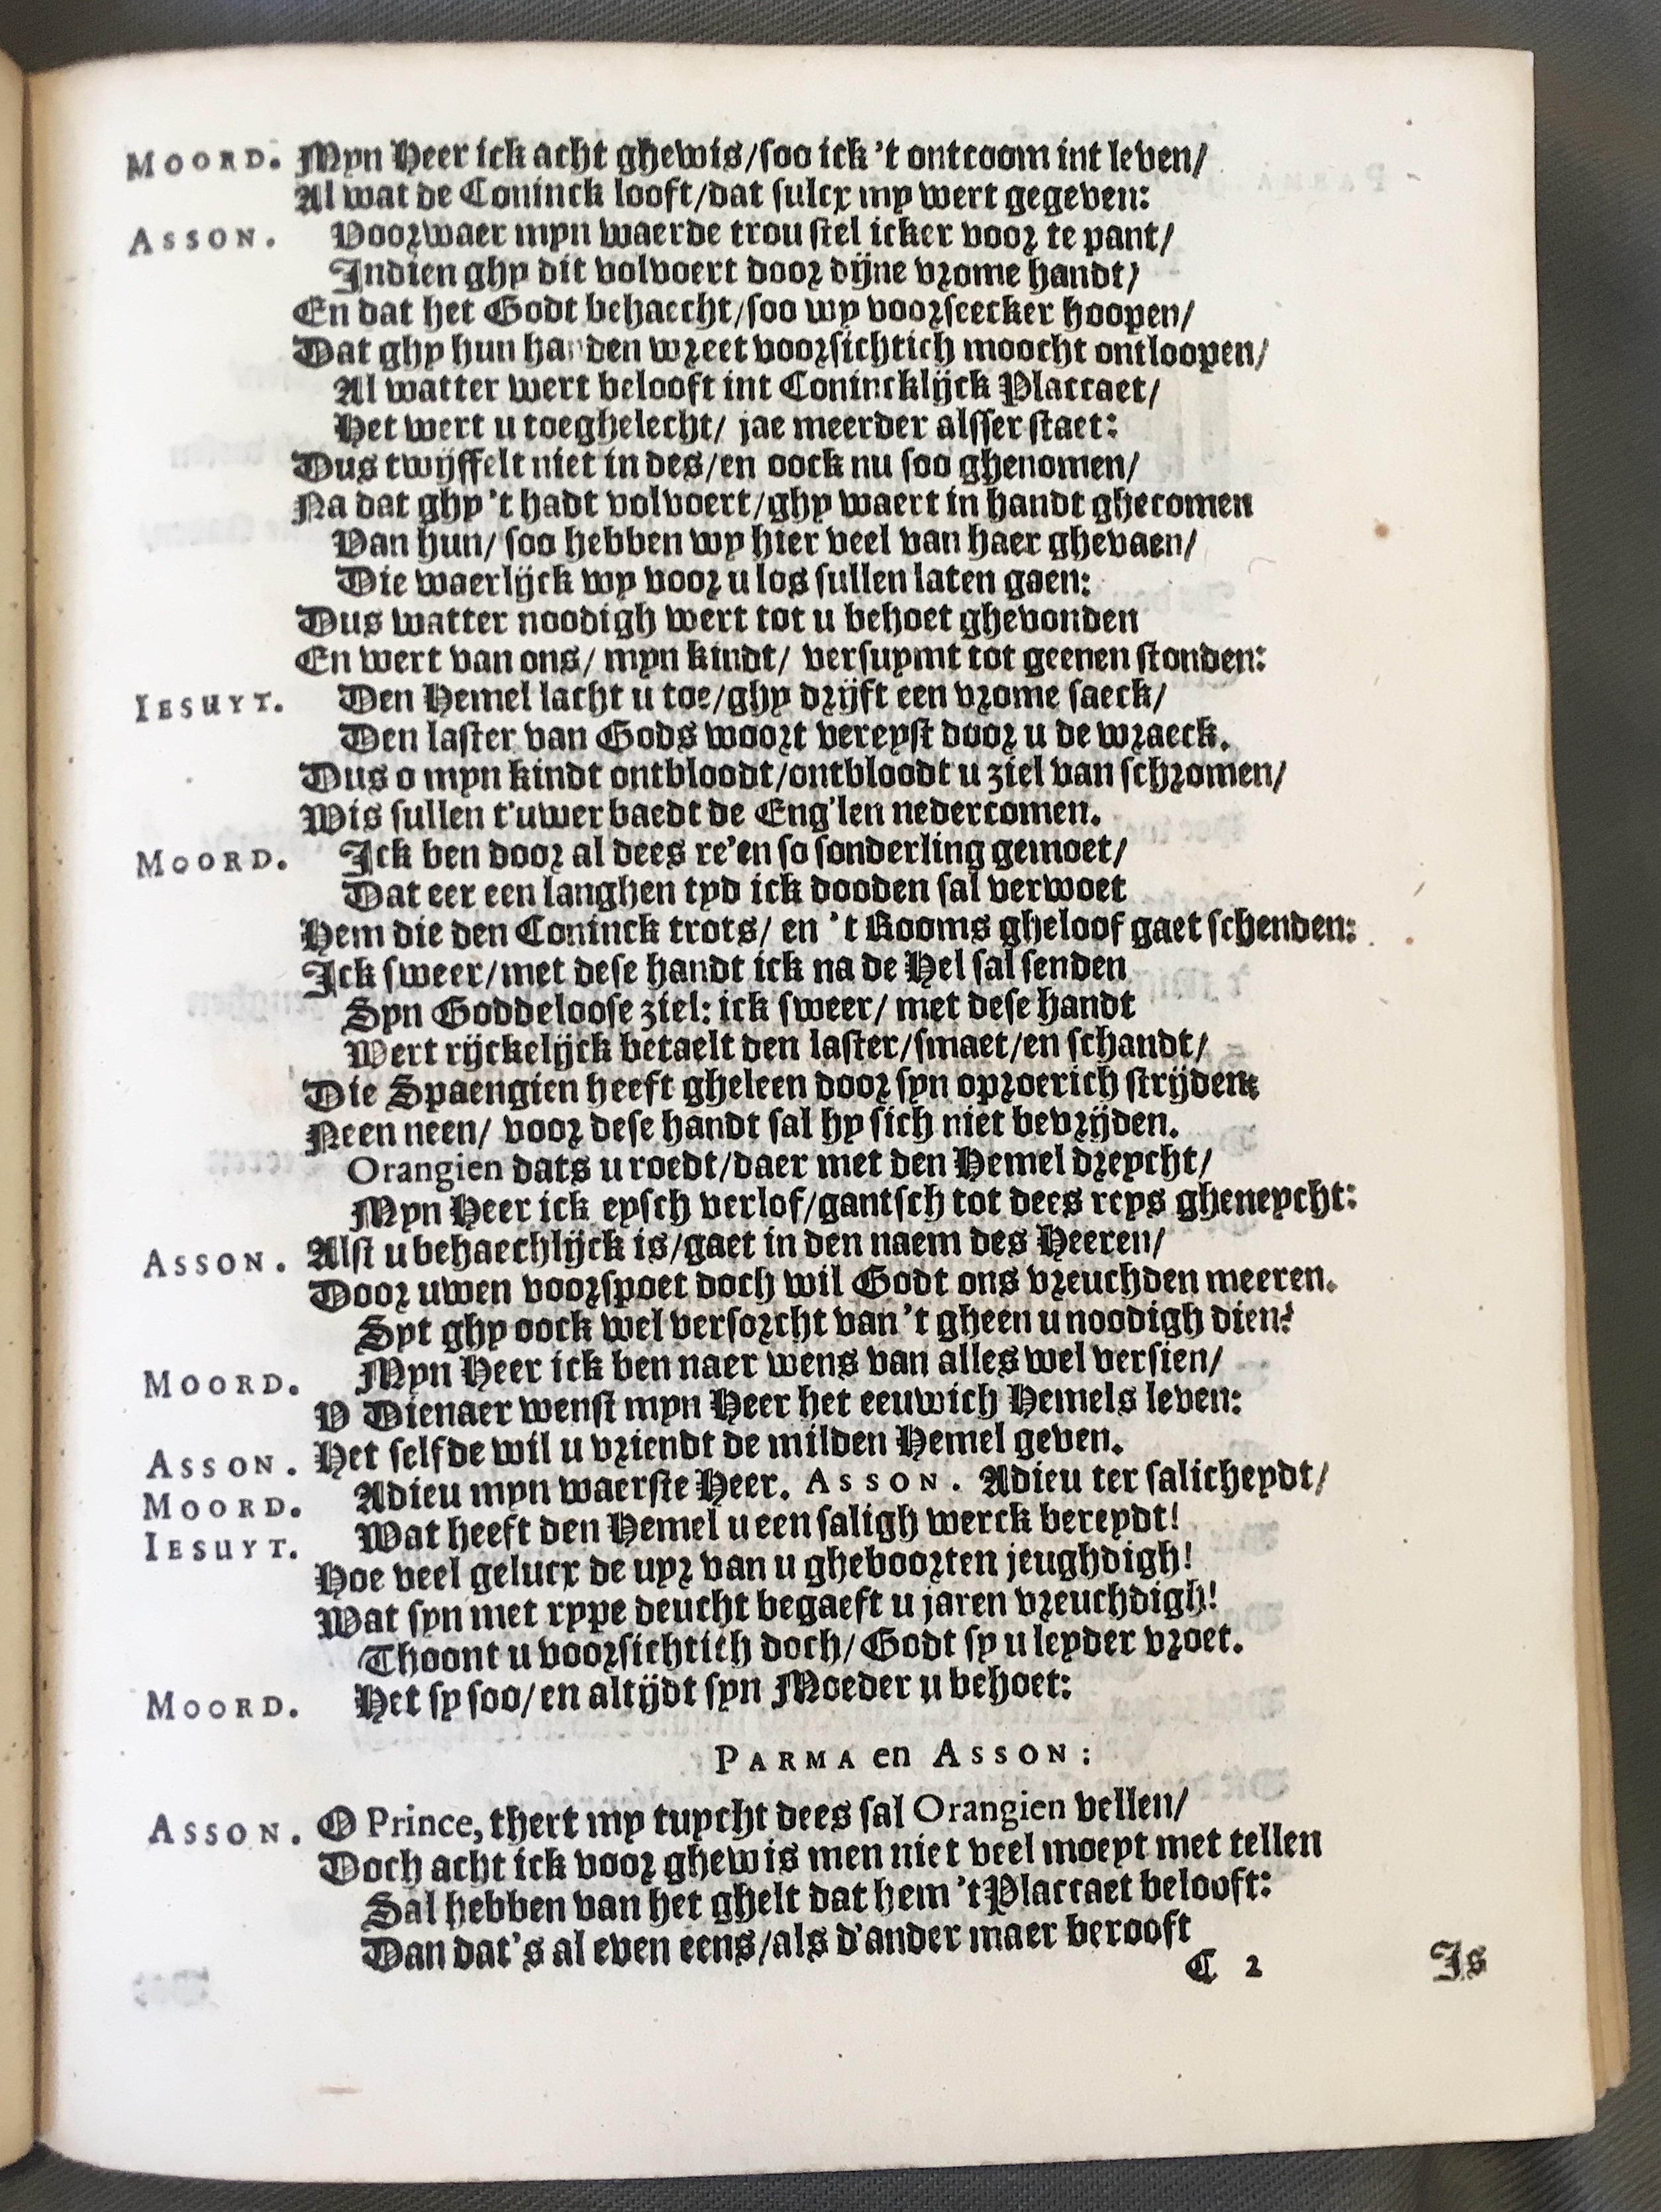 MOORD. Myn Heer ick acht ghewis/soo ick 't ontcoom int leven/
Al wat de Coninck looft/dat sulcx my wert gegeven:
ASSON. Voorwaer myn waerde trou stel icker voor te pant/
Indien ghy dit volvoert door dijne vrome handt/
En dat het Godt behaecht/soo wy voorseecker hoopen/
Dat ghy hun handen wreet voorsichtich moocht ontloopen/
Al watter wert belooft int Conincklijck Placcaet/
Het wert u toeghelecht/ jae meerder alsser staet:
Dus twijffelt niet in des/en oock nu soo ghenomen/
Na dat ghy 't hadt volvoert/ghy waert in handt ghecomen
Van hun/ soo hebben wy hier veel van haer ghevaen/
Die waerlijck wy voor u los sullen laten gaen:
Dus watter noodigh wert tot u behoet ghevonden
En wert van ons/ myn kindt/ versuymt tot geenen stonden:
IESUYT. Den Hemel lacht u toe/ghy drijft een vrome saeck/
Den laster van Gods woort vereyst door u de wraeck.
Dus o myn kindt ontbloodt/ontbloodt u ziel van schromen/
Wis sullen t'uwer baedt de Eng'len nedercomen.
MOORD. Ick ben door al dees re'en so sonderling gemoet/
Dat eer een langhen tyd ick dooden sal verwoet
Hem die den Coninck trots/ en 't Rooms gheloof gaet schenden:
Ick sweer/met dese handt ick na de Hel sal senden
Syn Goddeloose ziel: ick sweer/ met dese handt
Wert rijckelijck betaelt den laster/smaet/en schandt/
Die Spaengien heeft gheleen door syn oproerich strijden:
Neen neen/ voor dese handt sal hy sich niet bevrijden.
Orangien dats u roedt/daer met den Hemel dreycht/
Myn Heer ick eysch verlof/gantsch tot dees reys gheneycht:
ASSON. Alst u behaechlijck is/gaet in den naem des Heeren/
Door uwen voorspoet doch wil Godt ons vreuchden meeren.
Syt ghy oock wel versorcht van 't gheen u noodigh dien?
MOORD. Myn Heer ick ben naer wens van alles wel versien/
V Dienaer wenst myn Heer het eeuwich Hemels leven:
ASSON. Het selfde wil u vriendt de milden Hemel geven.
MOORD. Adieu myn waerste Heer. ASSON. Adieu ter salicheydt/
IESUYT. Wat heeft den Hemel u een saligh werck bereydt!
Hoe veel gelucx de uyr van u gheboorten jeughdigh!
Wat syn met rype deucht begaeft u jaren vreuchdigh!
Thoont u voorsichtich doch/Godt sy u leyder vroet.
MOORD. Het sy soo/en altijdt syn Moeder u behoet:
PARMA en ASSON:
ASSON. O Prince, thert my tuycht dees sal Orangien vellen/
Doch acht ick voor ghewis men niet veel moeyt met tellen
Sal hebben van het ghelt dat hem 't Placcaet belooft:
Dan dat's al even eens/als d'ander maer berooft
C 2 Is